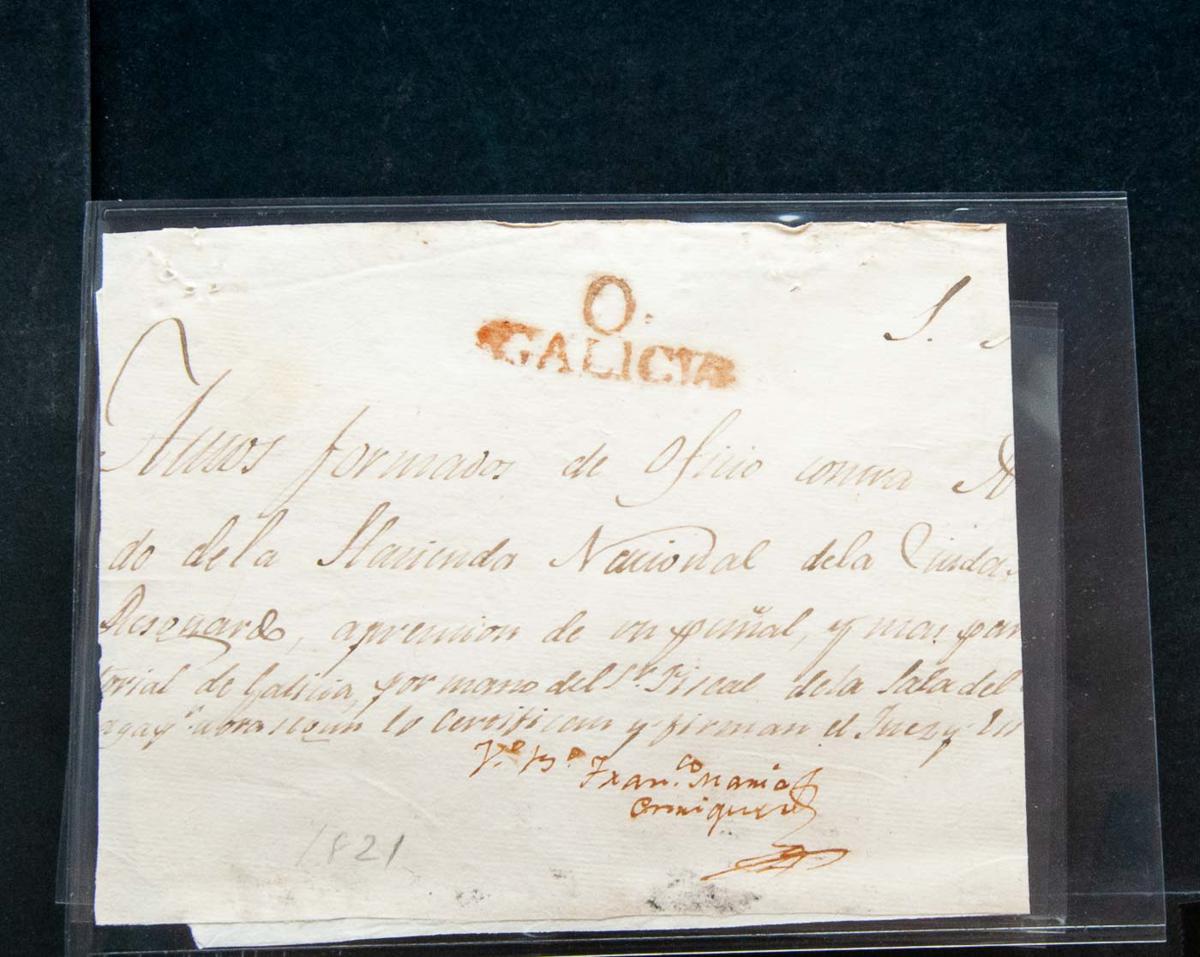 O.
GALICIA
S. S
Autos formados de oficio contra A
do dela Hacienda Nacional dela Ciuda
Resguardo, aprension de un puñal, y mas par
torial de Galicia, por mano del Sr. Fiscal dela Sala del
ahora segun lo Certifican y firman el Juez y Es
V.º B.º Fran.co Maria
1821